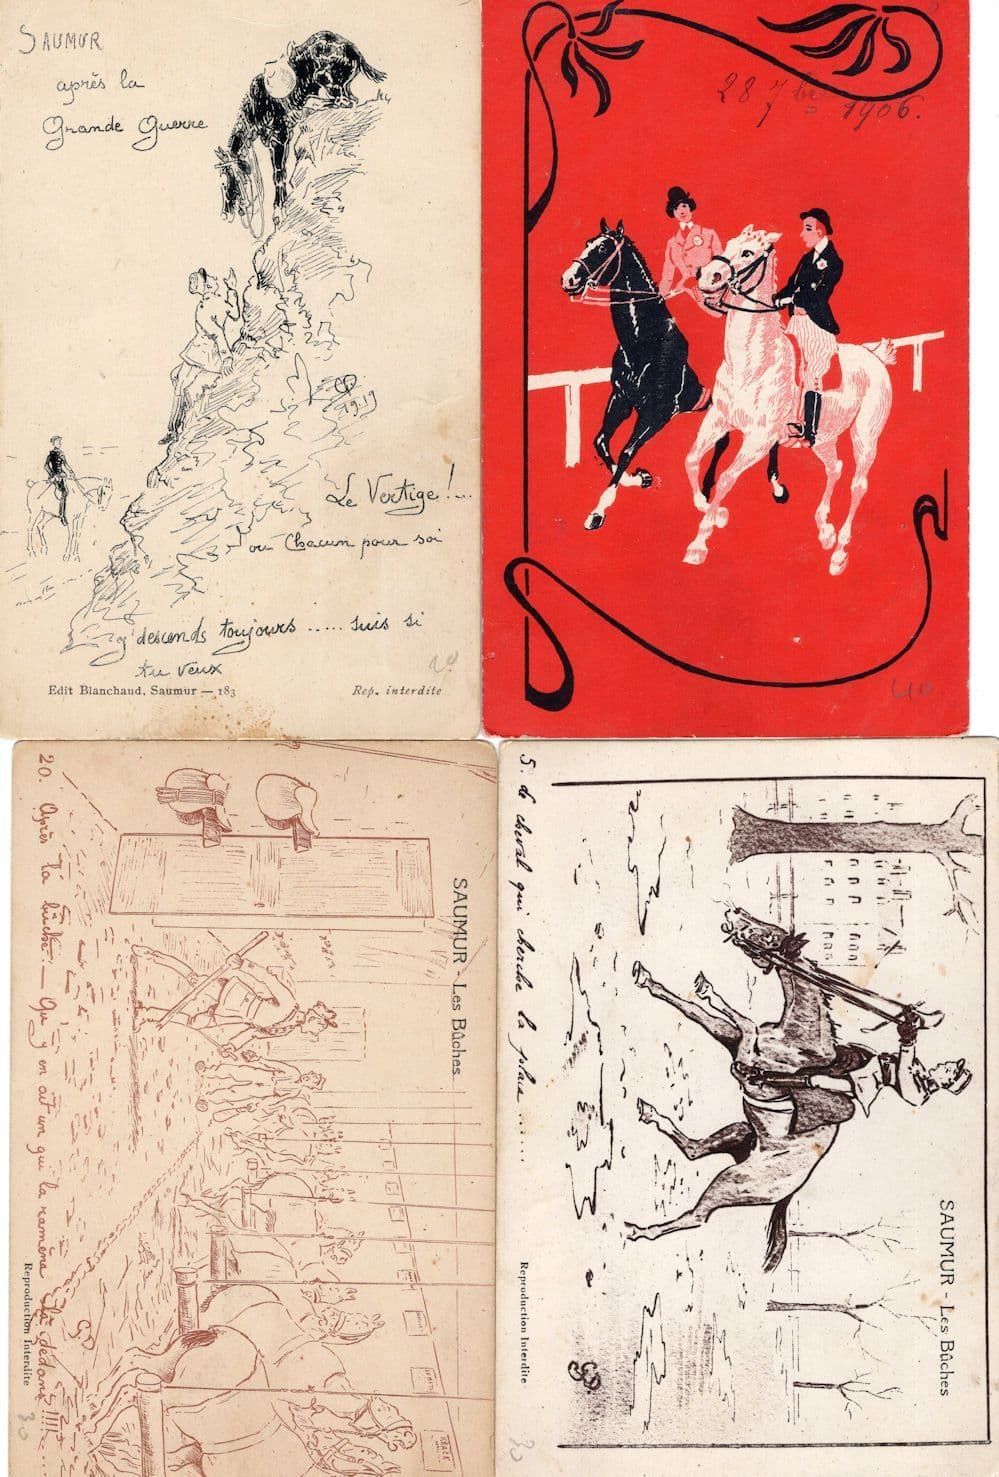 SAUMUR
après la
Grande Guerre
1919
Le Vertige !...
ou Chacun pour soi
j'descends toujours ..... suis si
tu veux
Edit Blanchaud, Saumur — 183
Rep. interdite
20
28 7bre 1906.
40
SAUMUR - Les Bûches
20. Après la bûche — Qu'y en ait un qui la ramène là dedans !!!!
Reproduction Interdite
30
SAUMUR - Les Bûches
5. le cheval qui cherche la place ......
Reproduction Interdite
30